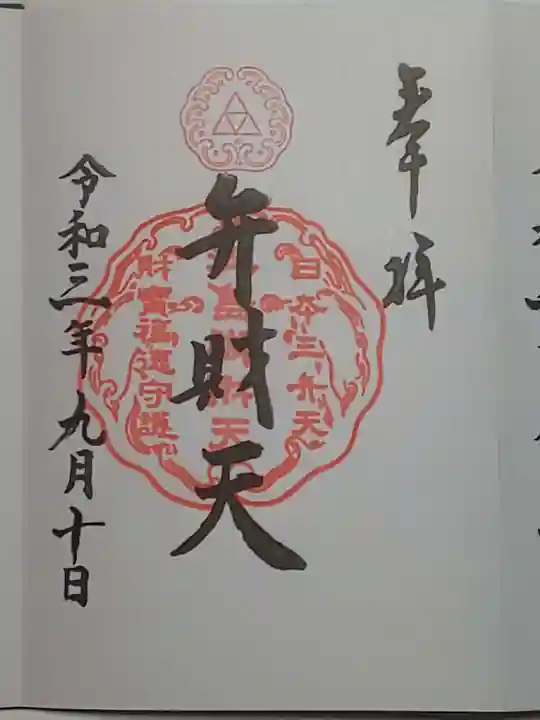 奉拝
日本三弁天
弁財天
財寶福徳守護
令和三年九月十日